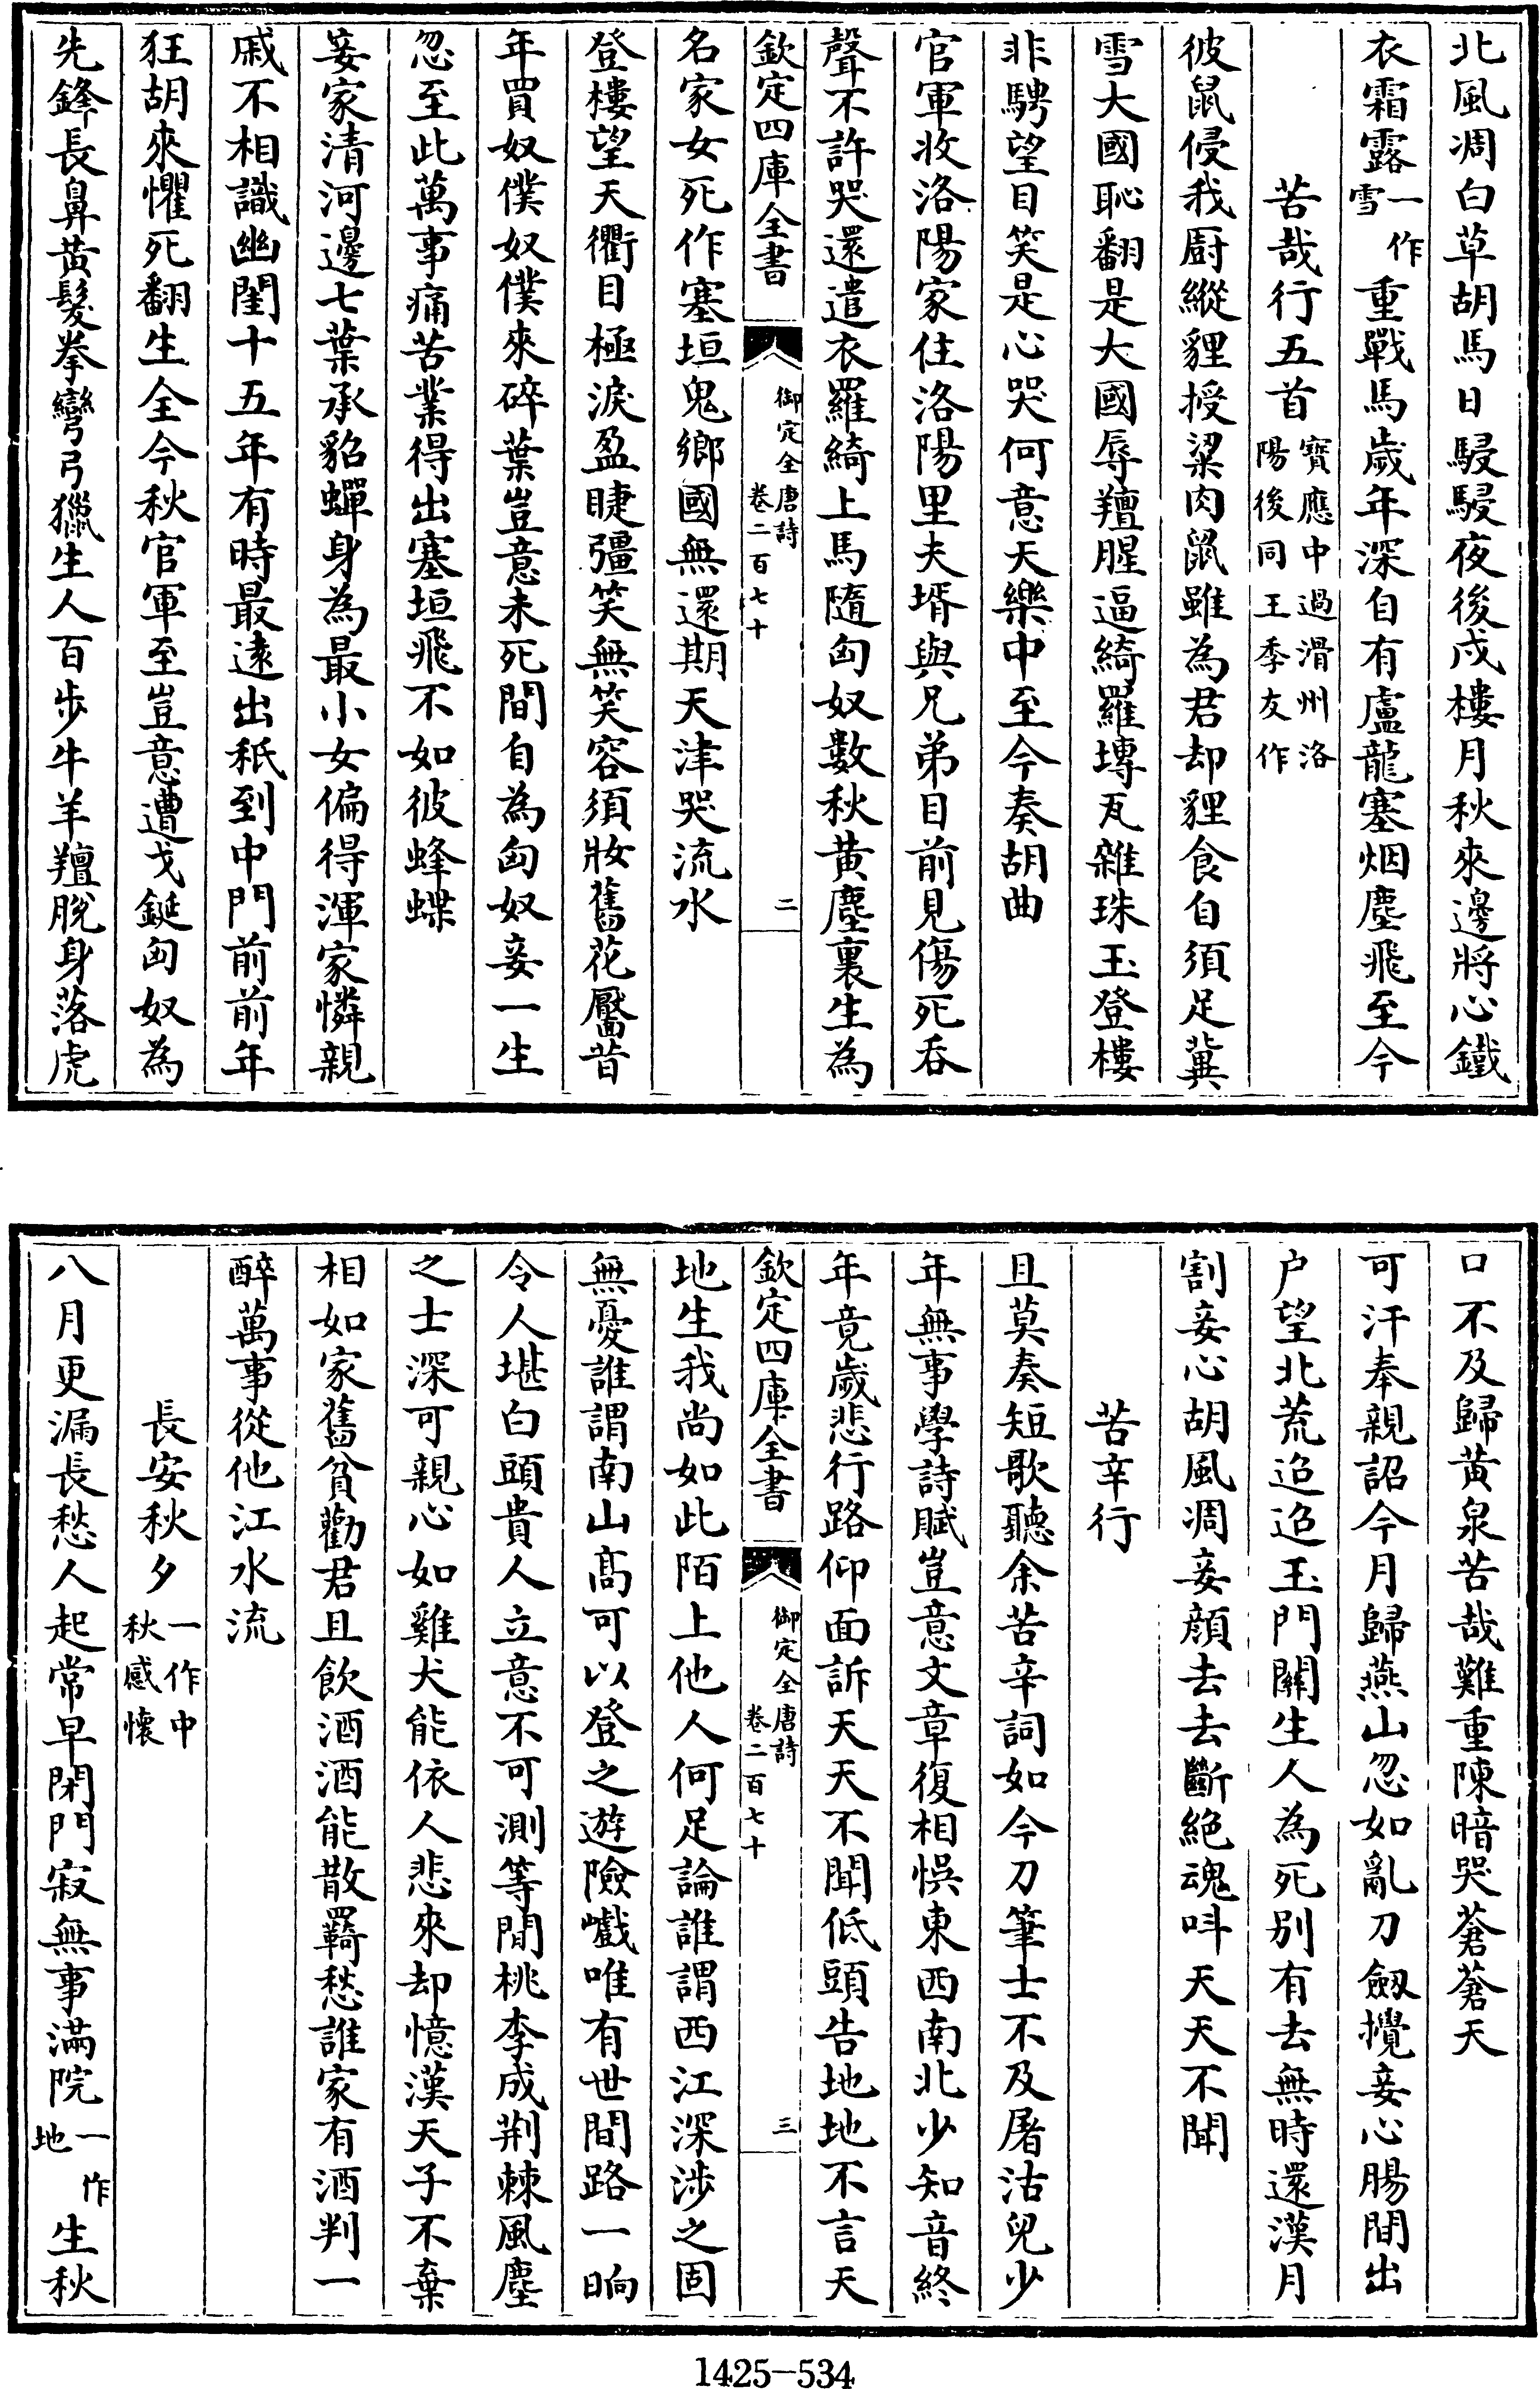 北風凋白草胡馬日駸駸夜後戍樓月秋來邊將心鐵
衣霜露一作雪重戰馬歲年深自有盧龍塞烟塵飛至今
苦哉行五首寶應中過滑州洛陽後同王季友作
彼鼠侵我厨縱貍授粱肉鼠雖為君却貍食自須足冀
雪大國恥翻是大國辱羶腥逼綺羅塼瓦雜珠玉登樓
非騁望目笑是心哭何意天樂中至今奏胡曲
官軍收洛陽家住洛陽里夫壻與兄弟目前見傷死吞
聲不許哭還遣衣羅綺上馬隨匈奴數秋黃塵裏生為
欽定四庫全書 御定全唐詩卷二百七十 二
名家女死作塞垣鬼鄉國無還期天津哭流水
登樓望天衢目極淚盈睫彊笑無笑容須妝舊花靨昔
年買奴僕奴僕來碎葉豈意未死間自為匈奴妾一生
忽至此萬事痛苦業得出塞垣飛不如彼蜂蝶
妾家清河邊七葉承貂蟬身為最小女偏得渾家憐親
戚不相識幽閨十五年有時最遠出秖到中門前前年
狂胡來懼死翻生全今秋官軍至豈意遭戈鋋匈奴為
先鋒長鼻黃髮拳彎弓獵生人百步牛羊羶脫身落虎
口不及歸黃泉苦哉難重陳暗哭蒼蒼天
可汗奉親詔今月歸燕山忽如亂刀劒攪妾心腸間出
户望北荒迢迢玉門關生人為死别有去無時還漢月
割妾心胡風凋妾顔去去斷絕魂呌天天不聞
苦辛行
且莫奏短歌聽余苦辛詞如今刀筆士不及屠沽兒少
年無事學詩賦豈意文章復相悞東西南北少知音終
年竟歲悲行路仰面訴天天不聞低頭告地地不言天
欽定四庫全書 御定全唐詩卷二百七十 三
地生我尚如此陌上他人何足論誰謂西江深涉之固
無憂誰謂南山髙可以登之遊險巇唯有世間路一晌
令人堪白頭貴人立意不可測等閒桃李成荆棘風塵
之士深可親心如雞犬能依人悲來却憶漢天子不棄
相如家舊貧勸君且飲酒酒能散羇愁誰家有酒判一
醉萬事從他江水流
長安秋夕一作中秋感懷
八月更漏長愁人起常早閉門寂無事滿院一作地生秋
1425-534